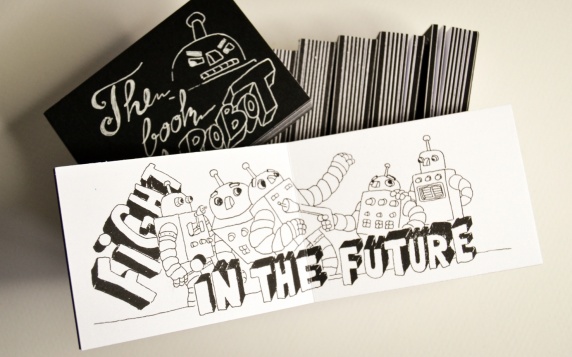 The
book
ROBOT
FIGHT
IN THE FUTURE